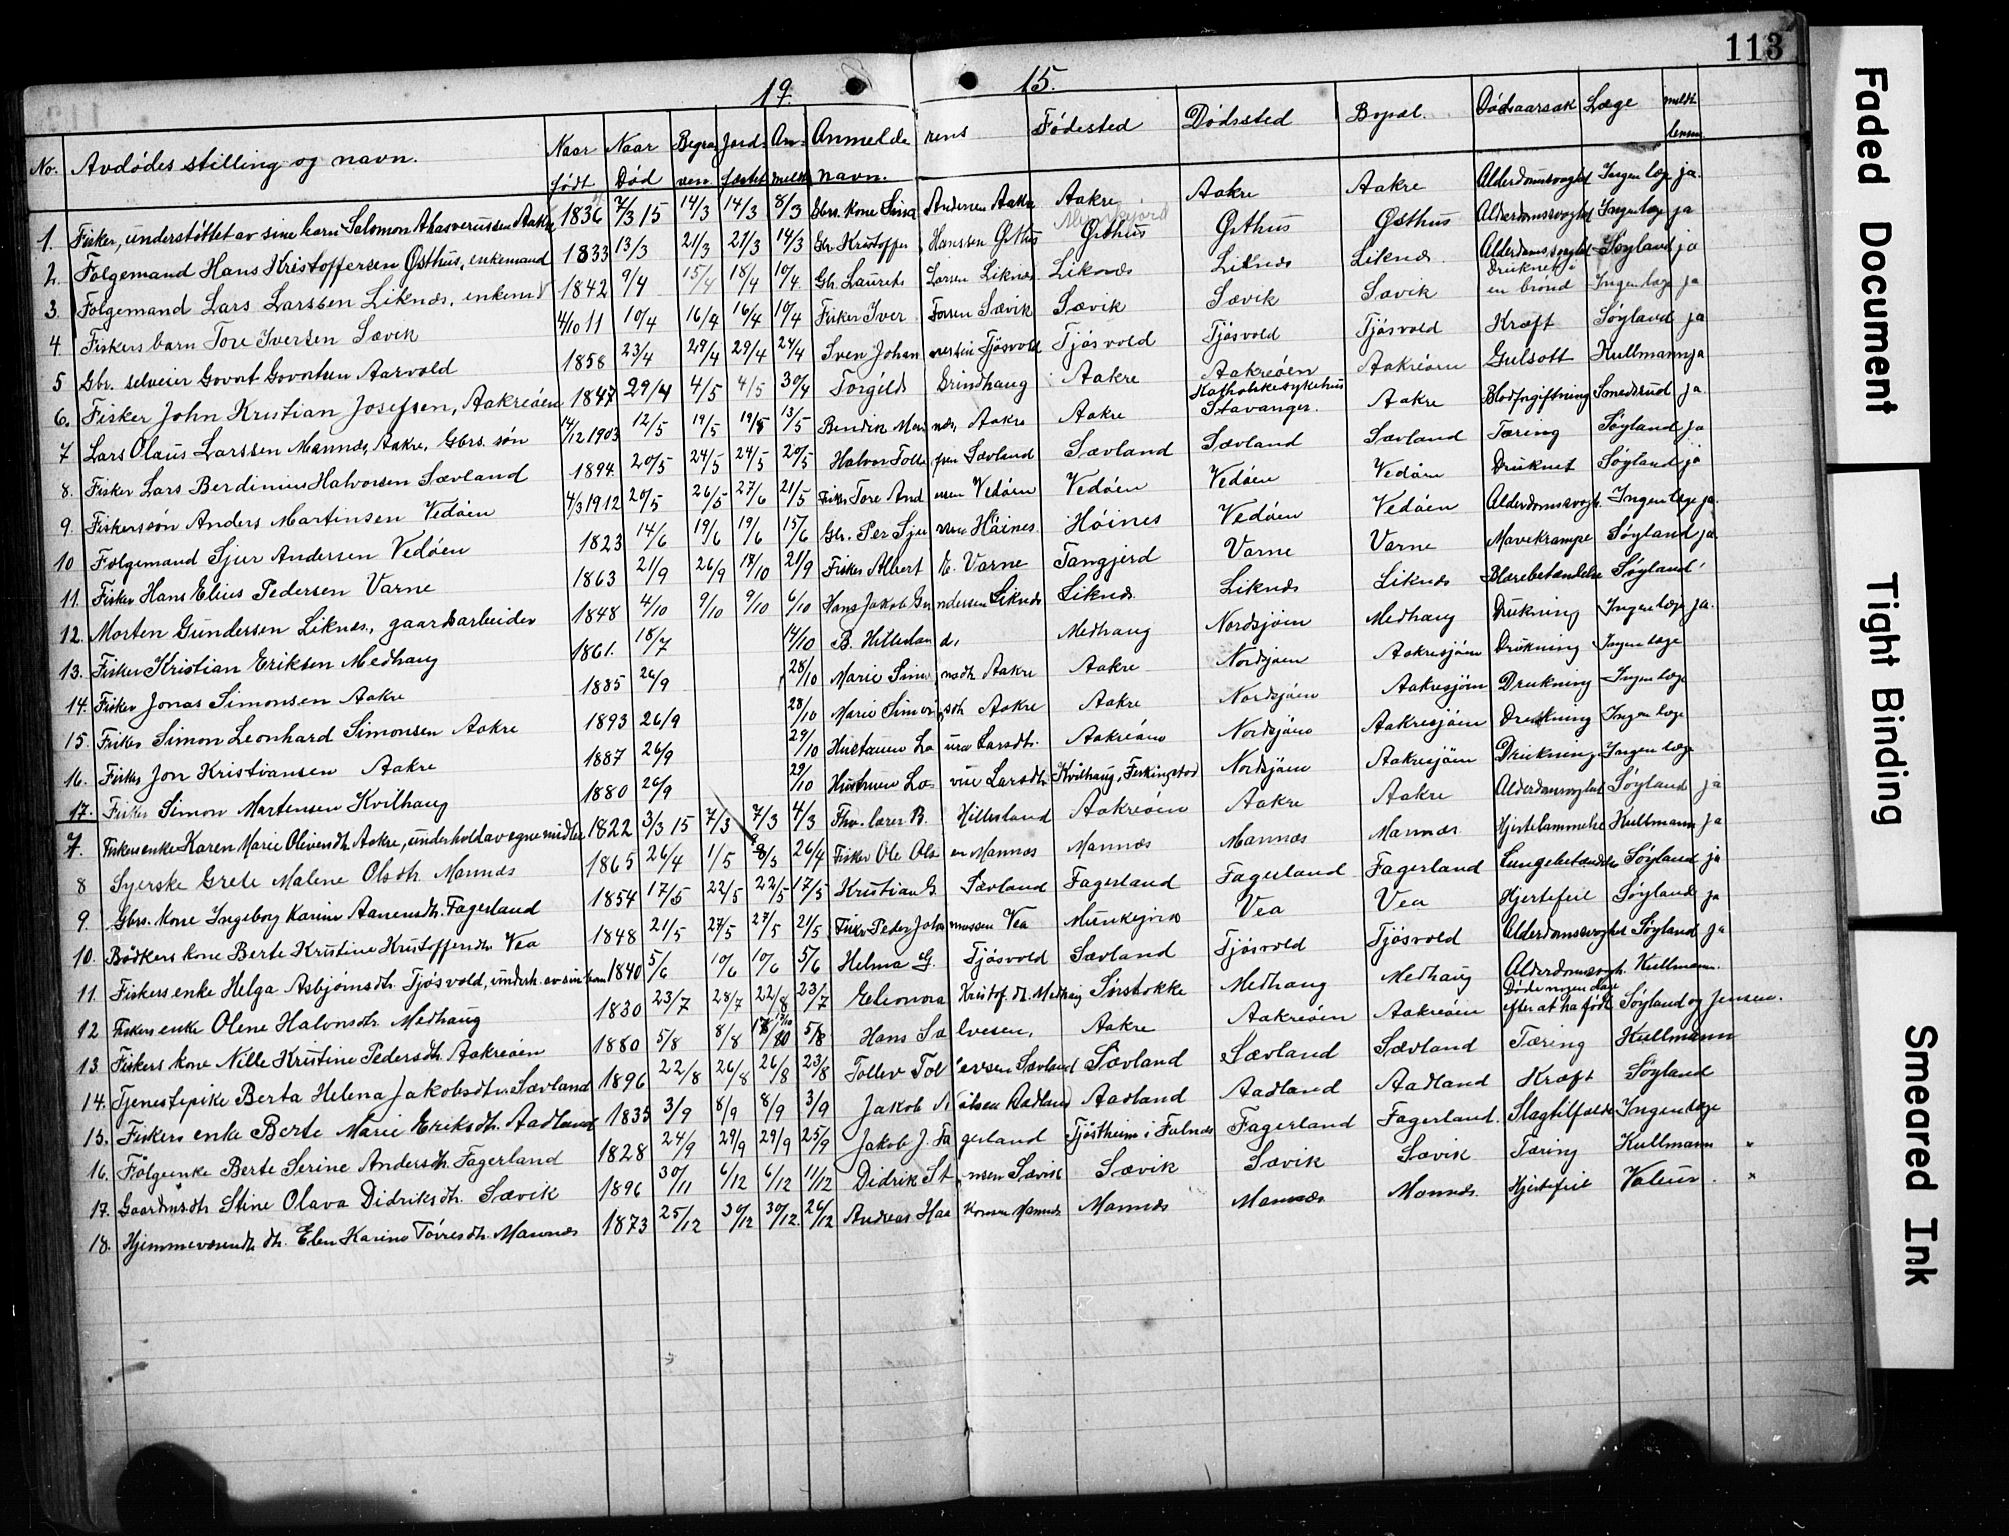 113
19 15.
No. Avdødes stilling og navn. Naar født Naar Død Begra- ven. Jord- fæstet An- meldt Anmelde rens navn. Fødested Dødssted Bopæl. Dødsaarsak Læge meldt
1. Fisker, understøttet av sine barn Salomon Ahasverussen Aakre 1836 7/3 15 14/3 14/3 8/3 Gbrs. kone Sina Andersen Aakre Aakre Aakre Aakre Alderdomssvaghet Ingen læge ja.
2. Følgemand Hans Kristoffersen Østhus, enkemand 1833 13/3 21/3 21/3 14/3 Gbr. Kristoffer Hanssen Østhus Østhus Østhus Østhus Alderdomssvaghet Ingen læge ja
3. Følgemand Lars Larssen Liknes, enkemd 1842 9/4 15/4 18/4 10/4 Gb. Laurits Larsen Liknes Liknes Liknes Liknes Alderdomssvaghet Søyland ja
4. Fiskers barn Tore Iversen Sævik 4/10 11 10/4 16/4 16/4 10/4 Fisker Iver Sævik Sævik Sævik Sævik Druknet i en brønd Ingen læge ja
5 Gbr. selveier Govert Govertsen Aarvold 1858 23/4 29/4 29/4 24/4 Sven Johan Tjøsvold Tjøsvold Tjøsvold Tjøsvold Kræft Søyland ja
6. Fisker John Kristian Josefsen, Aakreøen 1847 29/4 4/5 4/5 30/4 Torgils Grindhaug Aakre Aakreøen Aakreøen Gulsott Kullmann ja
7 Lars Olaus Larssen Mannes, Aakre, Gbrs. søn 14/12 1903 12/5 19/5 19/5 13/5 Bendik Aakre Aakre Katholske sykehus Stavanger. Aakre Blodforgiftning Smedsrud ja.
8. Fisker Lars Berdinius Halvorsen Sævland 1894. 20/5 24/5 24/5 20/5 Halvor Sævland Sævland Sævland Sævland Tæring Søyland ja
9. Fiskersøn Anders Martinsen Vedøen 4/3 1912 20/5 26/5 27/6 21/5 Fisker Tore And ersen Vedøen Vedøen Vedøen Vedøen Druknet Søyland ja
10 Følgemand Sjur Andersen Vedøen 1823 14/6 19/6 19/6 15/6 Gbr. Per Sju Høines Høines Vedøen Vedøen Alderdomssvagh. Ingen læge ja.
11. Fisker Hans Elius Pedersen Varne 1863 21/9 26/9 17/10 21/9 Fisker Albert E. Varne Tangjerd Varne Varne Mavekrampe Søyland ja.
12. Morten Gundersen Liknes, gaardsarbeider 1848 4/10 9/10 9/10 6/10 Hans Jakob Gu ndersen Liknes Liknes Liknes Liknes Blærebetændelse Søyland
13. Fisker Kristian Eriksen Medhaug 1861. 18/7 14/10 B. Hillestan d, Medhaug Nordsjøen Medhaug Drukning Ingen læge ja.
14. Fisker Jonas Simonsen Aakre 1885 26/9 28/10 Marie Simo nsdtr. Aakre Aakre Nordsjøen Aakresjøen Drukning Ingen læge
15. Fisker Simon Leonhard Simonsen Aakre 1893 26/9 28/10 Marie Simon sdtr. Aakre Aakre Nordsjøen Aakresjøen Drukning Ingen læge
16. Fisker Jon Kristiansen Aakre 1887 26/9 29/10 Hustruen Larsdtr. Aakreøen Nordsjøen Aakresjøen Drukning Ingen læge
17. Fisker Simon Martensen Kvilhaug 1880 26/9 29/10 Hustruen Larsdtr. Kvilhaug, Nordsjøen Aakresjøen Drukning Ingen læge
7. Fiskers enke Karen Marie Oliversdtr. Aakre, underholdt av egne midler 1822 3/3 15 7/3 7/3 4/3 Fhv. lærer B. Hillesland Aakreøen Aakre Aakre Alderdomssvaghet Søyland ja
8 Syerske Grete Malene Olsdtr. Mannes 1865 26/4 1/5 8/3 26/4 Fisker Ole Ols en Mannes Mannes Mannes Mannes Hjertelammelse Kullmann ja
9. Gbrs. kone Ingeborg Karine Aanensdtr. Fagerland 1854 17/5 22/5 22/5 17/5 Kristian G. Sævland Fagerland Fagerland Fagerland Lungebetændelse Søyland ja
10. Bødkers kone Berte Kristine Kristoffersdtr. Vea 1848 21/5 27/5 27/5 21/5 Fisker Peder Joha nnessen Vea Munkejord Vea Vea Hjertefeil Søyland ja
11. Fiskers enke Helga Asbjørnsdtr. Tjøsvold, underh. av sine barn 1840 5/6 10/6 10/6 5/6 Helma G. Tjøsvold Sævland Tjøsvold Tjøsvold Alderdomssvaghet Søyland ja
12 Fiskers enke Olene Halvorsdtr. Medhaug 1830 23/7 28/7 22/8 23/7 Eleonora Kristof. dtr. Medhaug Sørstokke Medhaug Medhaug Alderdomssvagh. Kullmann.
13. Fiskers kone Nille Kristine Pedersdtr. Aakreøen 1880 5/8 8/8 5/8 Hans Sæ lvesen, Aakre Aakreøen Aakreøen Døde nogen dage efter at ha født Søyland og Jensen.
14. Tjenestepike Berta Helena Jakobsdtr. Sævland 1896 22/8 26/8 26/8 23/8 Tollev Tol levsen Sævland Sævland Sævland Sævland Tæring Kullmann
15. Fiskers enke Berte Marie Eriksdtr. Aadland 1835 3/9 8/9 8/9 3/9 Jakob N ilsen Aadland Aadland Aadland Aadland Kræft Søyland
16. Følgeenke Berte Serine Andersdtr. Fagerland 1828 24/9 29/9 29/9 25/9 Jakob J. Fa gerland Tjøstheim i Falnes Fagerland Fagerland. Slagtilfælde Ingen læge
17. Gaardmsdtr. Stine Olava Didriksdtr. Sævik 1896 30/11 6/12 6/12 11/12 Didrik St ensen Sævik Sævik Sævik Sævik Tæring Kullmann
18. Hjemmeværende dtr. Elen Karine Tøresdtr. Mannes 1873 25/12 30/12 30/12. 26/12 Andreas Haa konsen Mannes Mannes Mannes Mannes Hjertefeil Valeur.
Faded Document
Tight Binding
Smeared Ink